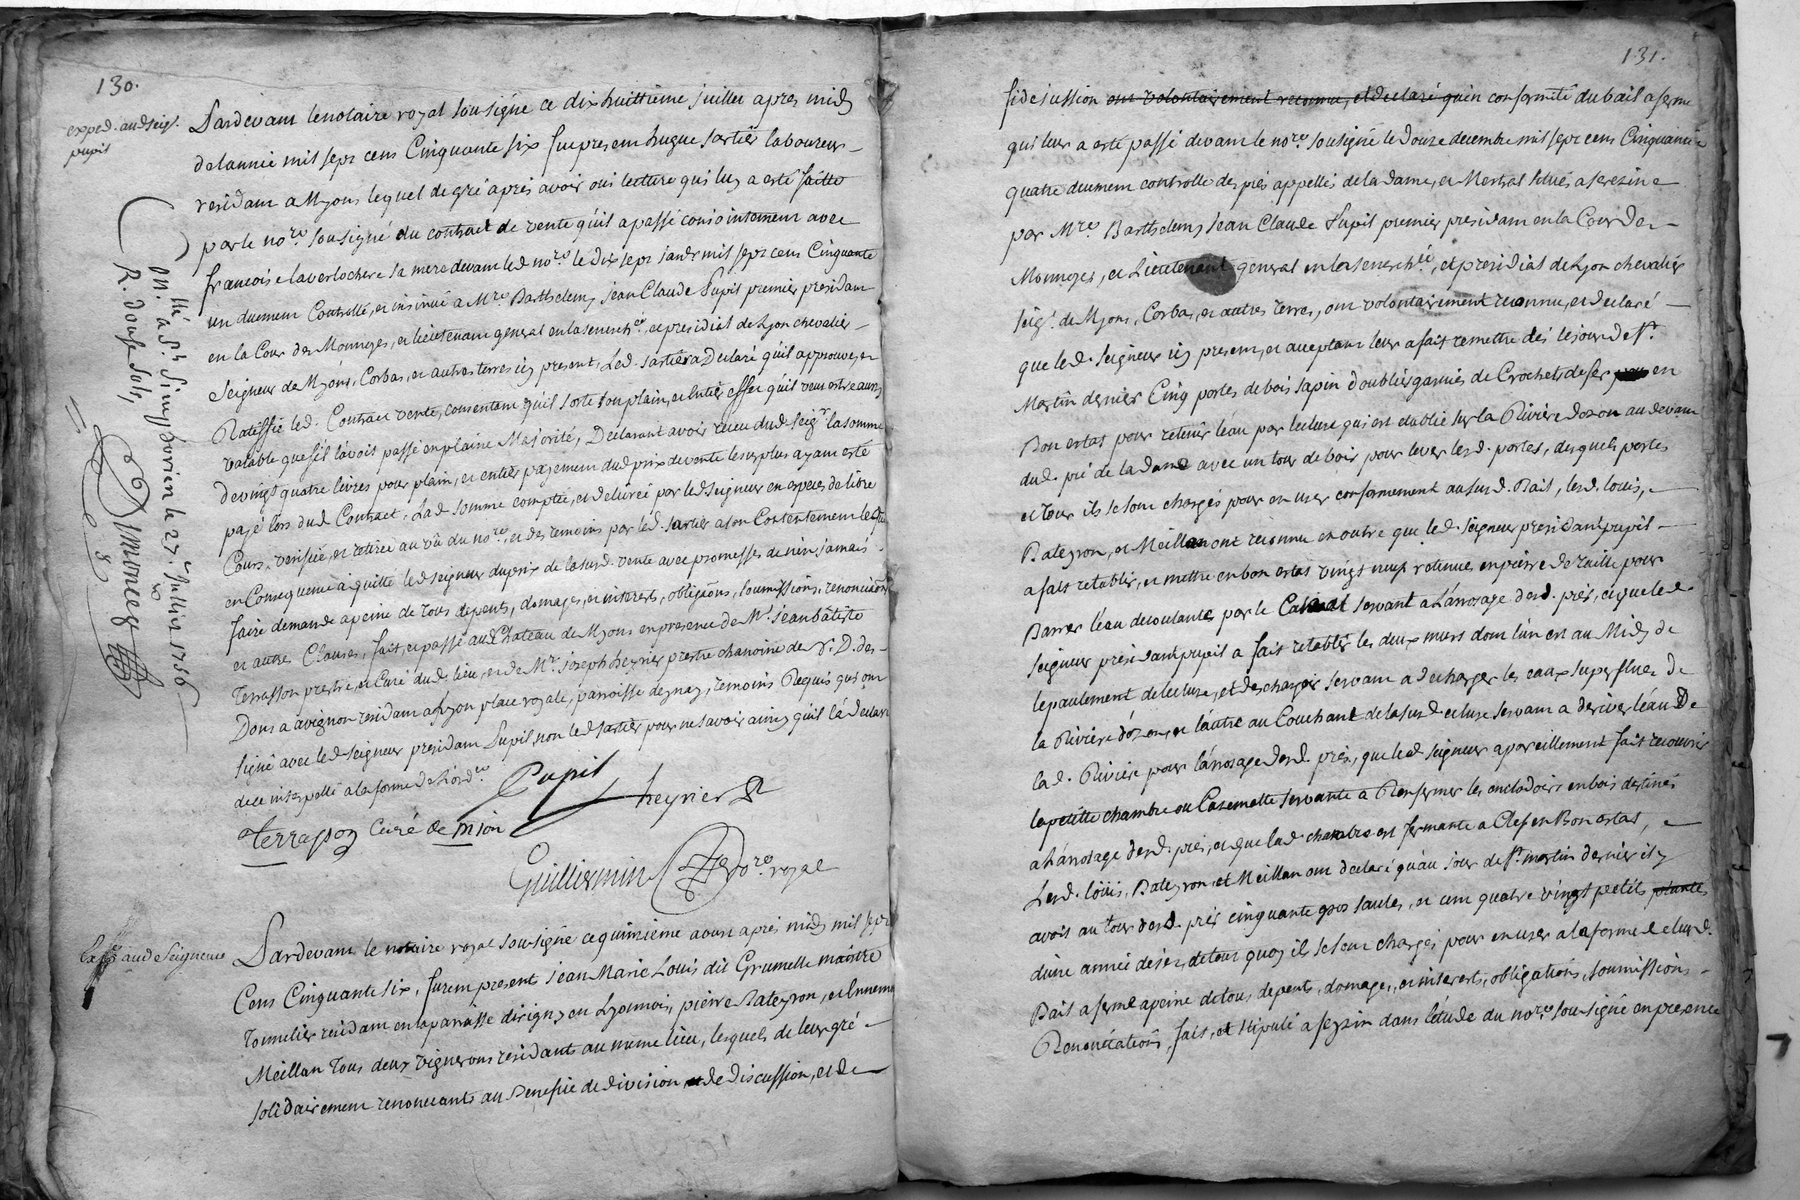 130.
exped. aud seigr.
pupil
Pardevant le notaire royal sousigné ce dix huittième juillet apres midy
de lannée mil sept cens Cinquante six fut present hugue sartier laboureur
residant a Myons lequel de gré après avoir oui lecture qui luy a esté faitte
par le nore. sousigné du contract de vente qu'il a passé conjointement avec
francoise laverlochere sa mere devant led. nore. le dix sept janer mil sept cens Cinquante
un duement Controllé, et insinué a Mre. Barthelemy jean Claude Pupil premier president
en la Cour des Monnoyes, et lieutenant general en la senerchée. et presidial de Lyon chevalier
Seigneur de Myons, Corbas, et autres terres icy present, Led. sartier a Declaré qu'il approuve, et
Ratiffie led. Contract vente, consentant qu'il sorte son plain, et entier effet qu'il veut estre aussy
valable que s'il l'avoit passé en plaine Majorité, Declarant avoir receu dud. Seigr. la somme
de vingt quatre livres pour plain, et entier payement dud prix de vente le surplus ayant esté
payé lors dud Contract, Lad somme comptée, et delivrée par led seigneur en especes de libre
Cours, verifiée, et retirée au vû du nore, et des temoins par led. sartier a son Contentement lequel
en Consequence a quitté led seigneur du prix de la susd. vente avec promesses de n'en jamais
faire demande a peine de tous depents, domages, et interests, obligaons, soumissions, renonciaons
et autres Clauses, fait, et passé aud Chateau de Myons en presence de Mr. jean batiste
Terrasson prestre, et Curé dud. lieu, et de Mr. joseph heyrier prestre chanoine de N. D. des
Dons a avignon residant a Lyon place royale, parroisse deynay, temoins Requis qui ont
signé avec led. seigneur president Pupil, non led sartier pour ne savoir ainsy qu'il la declaré
de ce interpellé a la forme de l'ordce
Pupil
heyrier
Terrasson Curé de mion
Guilliermin nore. royal
a St. Simphorien le 27e. Juillet 1756
R. douse sols
aud Seigneur
Pardevant le notaire royal sousigné ce quinzieme aoust apres midy mil sept
Cens Cinquante six, furent present jean Marie Louis dit Grumelle maistre
Tonnelier residant en la paroisse dirigny en Lyonnois, pierre Bateyron, et Ennemond
Meillan Tous deux vignerons residants au meme lieu, lesquels de leur gré
solidairement renoncants au Benefice de division, et de discussion, et de
131.
fidejussion ont volontairement reconnu, et declaré qu'en conformité du bail a ferme
qui leur a esté passé devant le nore. sousigné le Douze decembre mil sept cens Cinquante
quatre duement controllé des prés appellés de la Dame, et Mestral situés a serezin
par Mre. Barthelemy Jean Claude Pupil premier president en la Cour De
Monnoyes, et Lieutenant general en la senerchée, et presidial de Lyon chevalier
seigr. de Myons, Corbas, et autres terres, ont volontairement reconnu, et declaré
que led. seigneur icy present, et acceptant leur a fait remettre dés le jour de St.
Martin dernier Cinq portes de bois sapin doublées garnies de Crochets de fer en
Bon estat pour retenir l'eau par lecluse qui est etablie sur la Riviere dozon au devant
dud. pré de la dame avec un tour de bois pour lever lesd. portes, desquels portes
et tour ils se sont chargés pour en user conformement au susd. Bail, lesd. louis,
Bateyron, et Meillan ont reconnu en outre que led. seigneur president pupil
a fait retablir, et mettre en bon estat vingt neuf retenues en pierre de taille pour
Barrer l'eau decoulante par le Canal servant a L'arrosage desd. prés, et que led.
seigneur president pupil a fait retablir les deux murs dont l'un est au Midy de
lepaulement de lecluse, et deschargeoir servant a decharger les eaux superflues de
la Riviere d'ozon, et l'autre au Couchant de la susd ecluse servant a deriver l'eau De
lad. Riviere pour l'arrosage desd. prés, que led. seigneur a pareillement fait recouvrir
la petitte chambre ou Casemette servante a Renfermer les encladoirs en bois destinés
a L'arrosage desd. prés, et que lad chambre est fermante a Clef en Bon estat,
Lesd. loüis, Bateyron et Meillan ont declaré qu'au jour de St. martin dernier il y
avoit au tour desd. prés cinquante gros saules, et cent quatre vingt petits plantés
dune année désées, de tout quoy ils se sont chargés pour en user a la forme de leurd.
Bail a ferme a peine de tous depents, domages, et interests, obligations, soumissions
Renonciations, fait, et stipulé a seyzin dans l'étude du nore. sousigné en presence